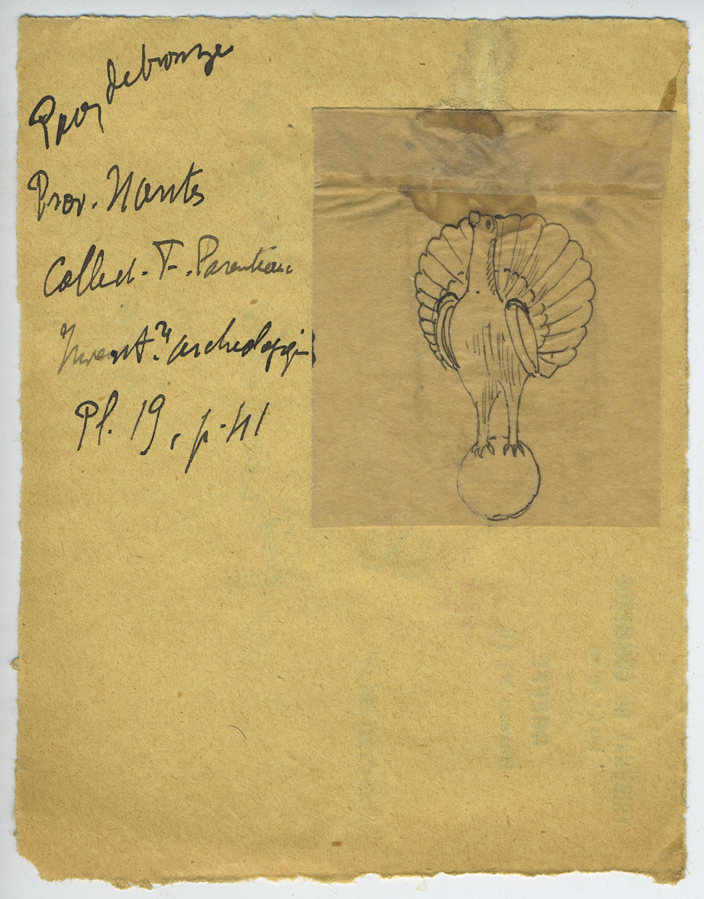 Paon de bronze
Prov. Nantes
Collect. F. Parenteau
Invent.re archéologiq
Pl. 19, p. 41